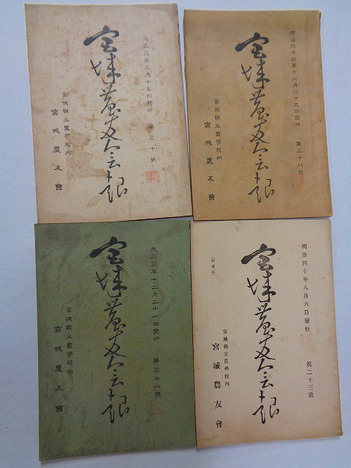 大正三年三月十五日發行
第三十號
宮城農友會報
宮城縣立農學校内
宮城農友會
明治四十四年十二月二十五日發行
第二十八號
宮城農友會報
宮城縣立農學校内
宮城農友會
大正三年十二月二十一日發行
第三十一號
宮城農友會報
宮城縣立農學校内
宮城農友會
明治四十年八月六日發行
第二十三號
宮城農友會報
宮城縣立農學校内
宮城農友會